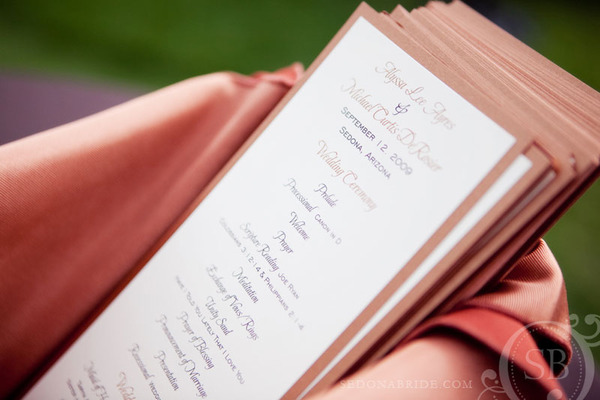 Alyssa Lee Ayres
&
Michael Curtis DeRosier
September 12, 2009
Sedona, Arizona
Wedding Ceremony
Prelude
Processional Canon in D
Welcome
Prayer
Scripture Reading Joe Ryan
Colossians 3:12-14 & Philippians 2:1-4
Meditation
Exchange of Vows/Rings
Unity Sand
Thank You Lately That I Love You
Prayer of Blessing
Pronouncement of Marriage
Presentation
Recessional
Wedding
Maid of
SEDONABRIDE.COM
SB